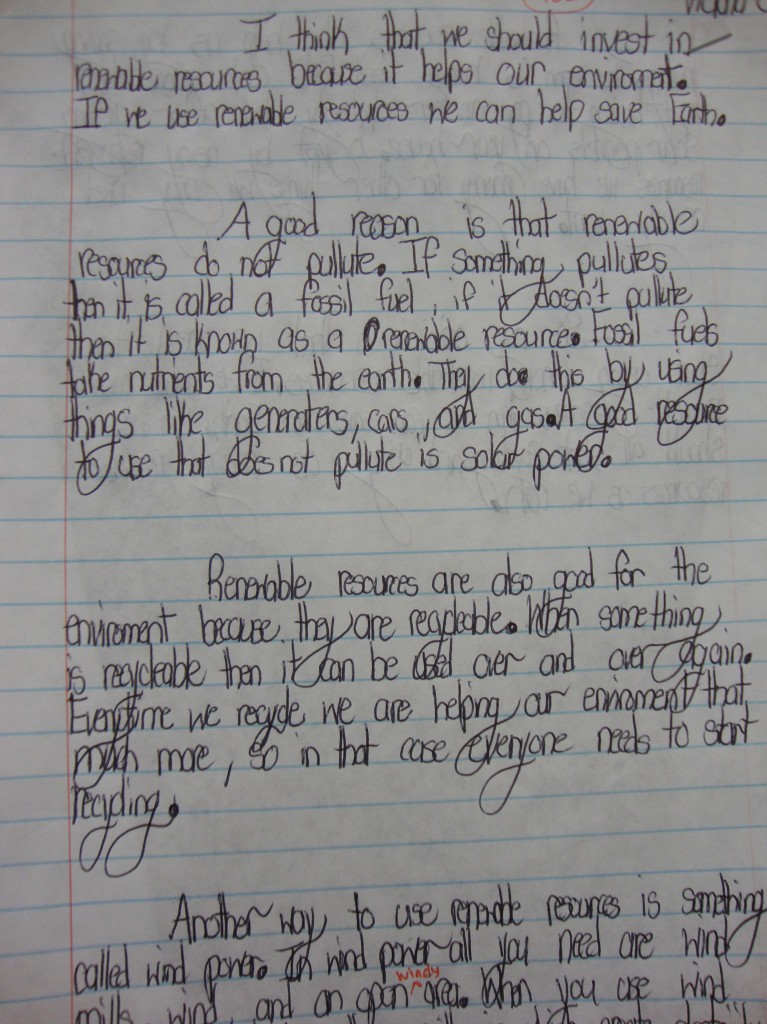 I think that we should invest in
renewable resources because it helps our enviroment.
If we use renewable resources we can help save Earth.
A good reason is that renewable
resources do not pullute. If something pullutes
then it is called a fossil fuel, if it doesn't pullute
then it is known as a renewable resource. Fossil fuels
take nutrients from the earth. They do this by using
things like generaters, cars, and gas. A good resource
to use that does not pullute is solar power.
Renewable resources are also good for the
enviroment because they are recycleable. When something
is recycleable then it can be used over and over again.
Everytime we recycle we are helping our enviroment that
much more, so in that case everyone needs to start
recycling.
Another way to use renewable resources is something
called wind power. In wind power all you need are wind
windy
mills, wind, and an open area. When you use wind